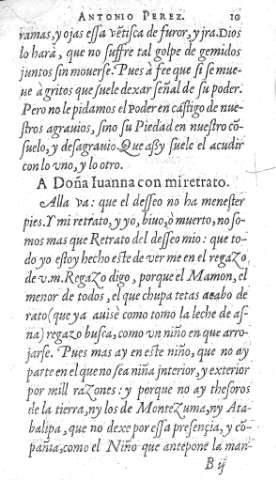 ANTONIO PEREZ. 10
ramas, y ojas essa vẽtisca de furor, y jra. Dios
lo hará, que no suffre tal golpe de gemidos
juntos sin mouerse. Pues à fee que si se mue-
ue à gritos que suele dexar señal de su poder.
Pero no le pidamos el Poder en castigo de nue-
stros agrauios, sino su Piedad en nuestro cõ-
suelo, y desagrauio. Que assy suele el acudir
con lo vno, y lo otro.
A Doña Iuanna con mi retrato.
Alla va: que el desseo no ha menester
pies. Y mi retrato, y yo, biuo, ò muerto, no so-
mos mas que Retrato del desseo mio: que to-
do yo estoy hecho este de ver me en el regazo
de v.m. Regazo digo, porque el Mamon, el
menor de todos, el que chupa tetas acabo de
rato (que ya auise como tomo la leche de as-
na) regazo busca, como vn niño en que arro-
jarse. Pues mas ay en este niño, que no ay
parte en el que no sea niña interior, y exterior
por mill razones: y porque no ay thesoros
de la tierra, ny los de Montezuma, ny Ata-
balipa, que no dexe por essa presençia, y cõ-
pañia, como el Niño que antepone la man-
B ij